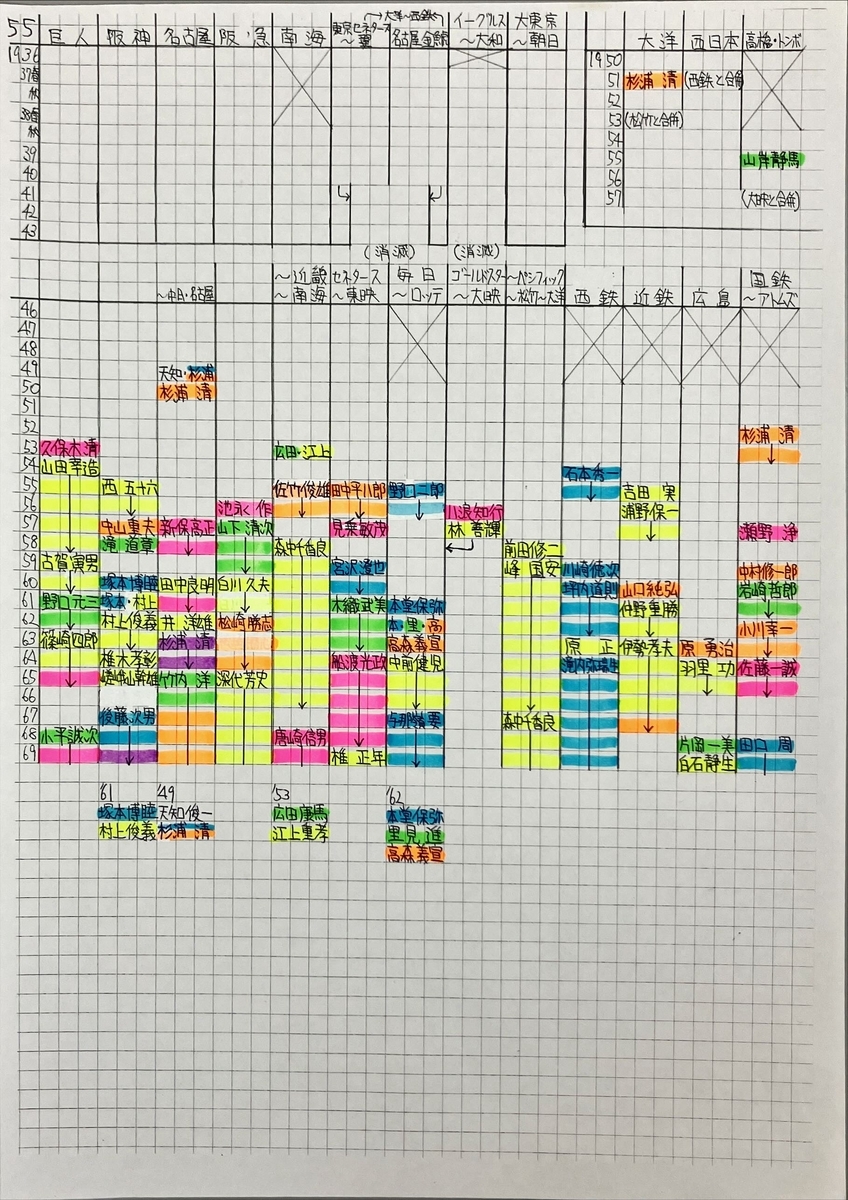 55 巨人 阪神 名古屋 阪急 南海 東京セネタース～翼 →大洋～西鉄 名古屋金鯱 イーグルス～大和 大東京～朝日
大洋 西日本 高橋・トンボ
1936
37春
秋
38春
秋
39
40
41
42
43
1950
51 杉浦 清 (西鉄と合併)
52
53 (松竹と合併)
54
55 山岸静馬
56
57 (大映と合併)
(消滅) (消滅)
～中日・名古屋 ～近畿～南海 セネタース～東映 毎日～ロッテ ゴールドスター～大映 ～パシフィック～松竹～大洋 西鉄 近鉄 広島 国鉄～アトムズ
46
47
48
49 天知・杉浦
50 杉浦 清
51
52 杉浦 清
53 久保木清 広田・江上
54 山田幸造 石本秀一
55 西 五十六 佐竹俊雄 田中平八郎 野口二郎 吉田 実
56 池永 作 小浪知行 浦野保一
57 中山重夫 新保高正 山下清次 見乗敏茂 林 善輝 瀬野 浄
58 滝 道章 森中千香良 前田修二
59 古賀寅男 宮沢澄也 峰 国安 川崎徳次 中村修一郎
60 塚本博睦 田中良明 白川久夫 坪内道則 山口純弘 岩崎哲郎
61 野口元三 塚本・村上 木織武美 本堂保弥 仲野重勝
62 村上俊義 井 洋雄 松崎勝志 本・里・高 小川幸一
63 篠崎四郎 杉浦 清 高森義宣 原 正 伊勢孝夫 原 勇治
64 椎木孝彰 船渡光政 中前健児 羽里 功 佐藤一誠
65 嵯峨山幹雄 竹内 洋 深代芳史
66
67 後藤次男 与那嶺要 森中千香良
68 小平誠次 唐崎信男 片岡一美 田口 周
69 椎 正年 白石静生
'61 '49 '53 '62
塚本博睦 天知俊一 広田康馬 本堂保弥
村上俊義 杉浦 清 江上重孝 里見 進
高森義宣